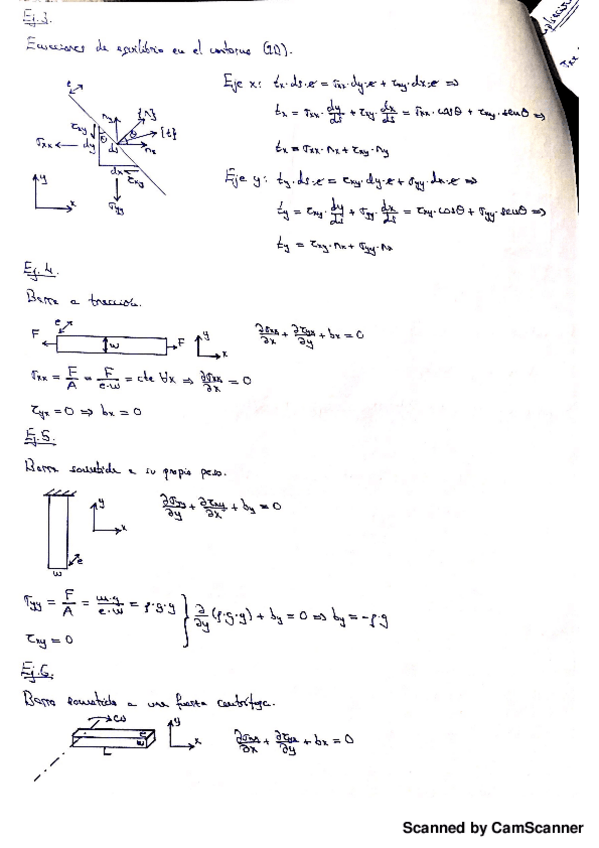 Ej.3.
Ecuaciones de equilibrio en el contorno (2D).
e
τxy
dy
ny
{n}
θ
{t}
σxx
ds
nx
dx
τxy
σyy
y
x
Eje x: tx·ds·e = σxx·dy·e + τxy·dx·e ⇒
tx = σxx·dy/ds + τxy·dx/ds = σxx·cosθ + τxy·senθ ⇒
tx = σxx·nx + τxy·ny
Eje y: ty·ds·e = τxy·dy·e + σyy·dx·e ⇒
ty = τxy·dy/ds + σyy·dx/ds = τxy·cosθ + σyy·senθ ⇒
ty = τxy·nx + σyy·nx
Ej.4.
Barra a tracción.
F
e
w
F
y
x
∂σxx/∂x + ∂τyx/∂y + bx = 0
σxx = F/A = F/e·w = cte ∀x ⇒ ∂σxx/∂x = 0
τyx = 0 ⇒ bx = 0
Ej.5.
Barra sometida a su propio peso.
y
x
e
w
∂σyy/∂y + ∂τxy/∂x + by = 0
σyy = F/A = m·g/e·w = ρ·g·y } ∂/∂y (ρ·g·y) + by = 0 ⇒ by = -ρ·g
τxy = 0
Ej.6.
Barra sometida a una fuerza centrífuga.
ω
e
w
L
y
x
∂σxx/∂x + ∂τyx/∂y + bx = 0
Scanned by CamScanner